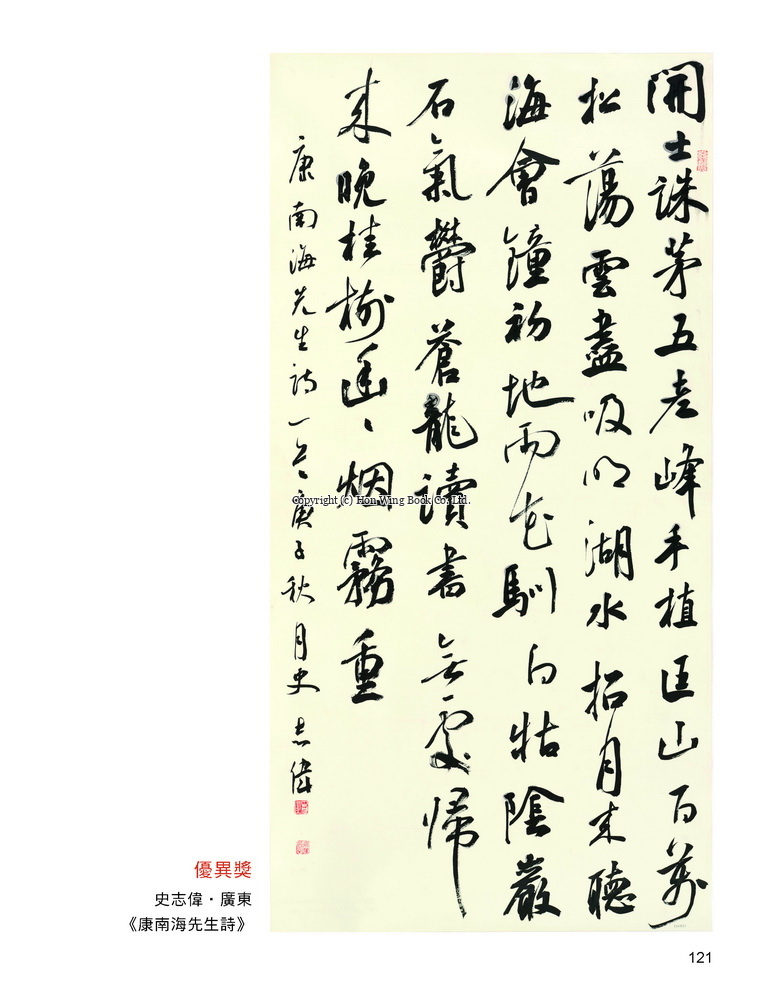 開士誅茅五老峰手植匡山百萬
松蕩雲盡吸明湖水招月來聽
海會鐘初地雨花馴白牯陰巖
石氣鬱蒼龍讀書無處歸
來晚桂樹幽〻烟霧重
康南海先生詩一首庚子秋月史志偉
Copyright (c) Hon Wing Book Co. Ltd.
優異獎
史志偉·廣東
《康南海先生詩》
121